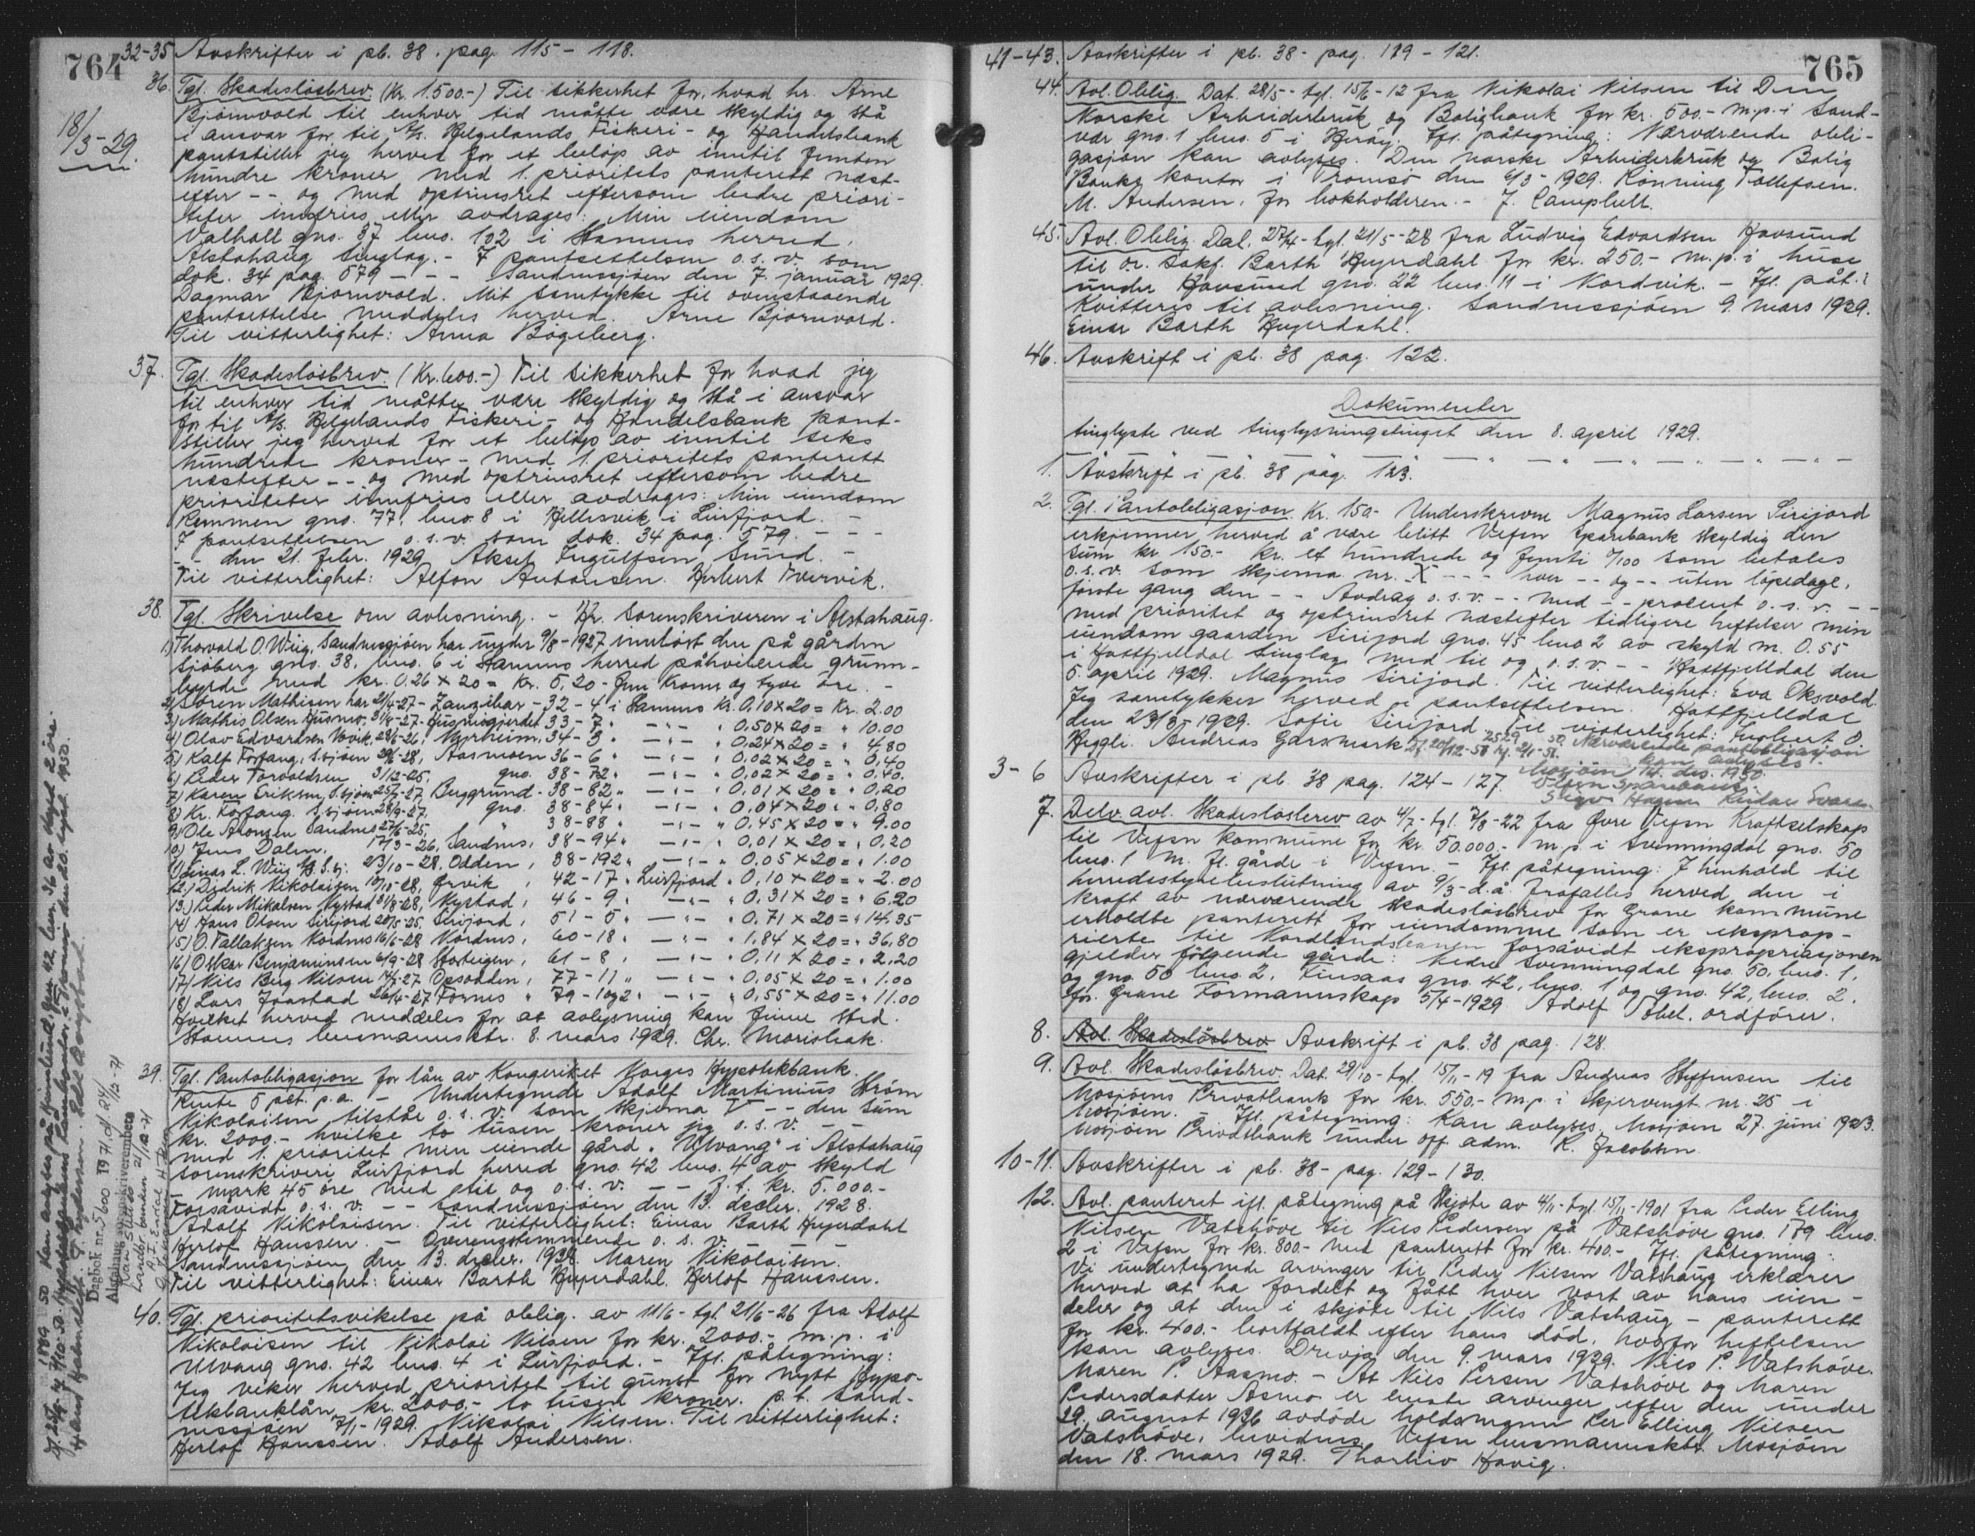 764
32-35 Avskrifter i pb. 38. pag. 115 - 118.
18/3-29.
36. Tgl. Skadesløsbrev (Kr. 1.500.-) Til sikkerhet for, hvad hr. Arne
Bjørnvold til enhver tid måtte være skyldig og stå
i ansvar for til A/S. Helgelands Fiskeri- og Handelsbank
pantstiller jeg herved for et beløp av inntil femten
hundre kroner med 1. prioritets panterett næst-
efter -- og med optrinsret eftersom bedre priori-
teter innfries eller avdrages: Min eiendom
Valhall gno. 37 bno. 102 i Stamnes herred,
Alstahaug tinglag. - I pantsettelsen o.s.v. som
dok. 34 pag. 579 - - - Sandnessjøen den 7. januar 1929.
Dagmar Bjørnvold. Mit samtykke til ovenstaaende
pantsettelse meddeles herved. Arne Bjørnvord.
Til vitterlighet: Anna Bøgeberg.
37. Tgl. Skadesløsbrev (Kr. 600.-) Til sikkerhet for hvad jeg
til enhver tid måtte være skyldig og stå i ansvar
for til A/S. Helgelands Fiskeri- og Handelsbank pant-
stiller jeg herved for et beløp av inntil seks
hundrede kroner - med 1. prioritets panterett
næstefter -- og med optrinsret eftersom bedre
prioriteter innfries eller avdrages: Min eiendom
Remmen gno. 77, bno. 8 i Hellesvik i Leirfjord. -
I pantsettelsen o.s.v. som dok. 34 pag. 579. - - -
- - den 21. febr. 1929. Aksel Ingulfsen Sund. -
Til vitterlighet: Alfon Antonsen. Herbert Tvervik.
38. Tgl. Skrivelse om avløsning. - Hr. Sorenskriveren i Alstahaug.
1) Thorvald O. Wiig, Sandnessjøen har under 9/8-1927 innløst den på gården
Sjøberg gno. 38, bno. 6 i Stamnes herred påhvilende grunn-
byrde med kr. 0.26 x 20 = kr. 5.20 - fem kroner og tyve øre. -
2) Søren Mathisen har 21/4-27 - Zanzibar - 32 - 4 i Stamnes Kr. 0.10 x 20 = Kr. 2.00
3) Mathis Olsen Husmo, 31/8-27, Husmogjerdet 33 - 7 " - " - " 0.50 x 20 = " 10.00
4) Olav Edvardsen Vovik, 28/6-26, Myrheim, 34 - 3 " - " - " 0.24 x 20 = " 4.80
5) Ralf Forfang, S.sjøen 20/6-28, Aasmoen 36 - 6 " - " - " 0.02 x 20 = " 0.40
6) Peder Torvoldsen 31/12-25, gno. 38 - 72 " - " - " 0.02 x 20 = " 0.40.
7) Karen Eriksen, S.sjøen 25/7-27, Berggrund - 38 - 82 " - " - " 0.01 x 20 = " 0.20
8) Kr. Forfang, S.sjøen 28/9-27, gno. 38 - 84 " - " - " 0.04 x 20 = " 0.80
9) Ole Aronsen Sandnes 27/6-25, " 38 - 88 " - " - " 0.45 x 20 = " 9.00
10) Jens Dalen, 17/3-26, Sandnes, 38 - 94 " - " - " 0.01 x 20 = " 0.20
11) Einas L. Wiig 23/10-28, Odden, 38 - 192 " - " - " 0.05 x 20 = " 1.00
12) Didrik Nikolaisen 19/10-28, Ørvik, 42 - 17 " Leirfjord " 0.10 x 20 = " 2.00
13) Peder Mikalsen Nystad 31/8-28, Nystad, 46 - 9 " - " - " 0.31 x 20 = " 6.20
14) Hans Olsen Sirijord 20/5-25, Sirijord, 51 - 5 " - " - " 0.71 x 20 = " 14.35
15) O. Tallaksen Nordnes 16/6-28 Nordnes, 60 - 18 " - " - " 1.84 x 20 = " 36.80
16) Oskar Benjaminsen 6/9-28 Storteigen, 61 - 8 " - " - " 0.11 x 20 = " 2.20
17) Nils Berg Nilsen 14/7-27 Opsodden, 77 - 11 " - " - " 0.05 x 20 = " 1.00
18) Lars Jaastad 26/4-27 Fornes " 79 - 1og2 " - " - " 0.55 x 20 = " 11.00
Hvilket herved meddeles for at avlysning kan finne sted.
Stamnes lensmannsktr. 8. mars 1929. Chr. Morisbak.
39. Tgl. Pantobligasjon for lån av Kongeriket Norges Hypotekbank.
Rente 5 pct. p.a. - Undertegnede Adolf Martinius Strøm
Nikolaisen tilstår o.s.v. som skjema V - - den sum
kr. 2000.- hvilke to tusen kroner jeg o.s.v. - -
med 1. prioritet min eiende gård "Ulvang" i Alstahaug
sorenskriveri Leirfjord herred gno. 42 bno. 4 av skyld
- mark 45 øre med til og o.s.v. - - J. f. kr. 5.000.-
Forsåvidt o.s.v. - - Sandnessjøen den 13. decbr. 1928.
Adolf Nikolaisen. Til vitterlighet: Einar Barth Heyerdahl
Herlof Hanssen. - Overensstemmende o.s.v.
Sandnessjøen den 13. decbr. 1928. Maren Nikolaisen.
Til vitterlighet: Einar Barth Heyerdahl. Herlof Hanssen.
40. Tgl. prioritetsvikelse på oblig. av 11/6- tgl. 21/6-26 fra Adolf
Nikolaisen til Nikolai Nilsen for kr. 2000.- m.p. i
Ulvang gno. 42 bno. 4 i Leirfjord. - Ifl. påtegning:
Jeg viker herved prioritet til gunst for nytt hypo-
tekbanklån kr. 2000.- to tusen kroner. p.t. Sand-
nessjøen 7/1-1929. Nikolai Nilsen. Til vitterlighet:
Herlof Hanssen. Adolf Andersen.
Dagbok nr. 5600 1971 d. 24/
Alstahaug sorenskriverembete
765
41-43. Avskrifter i pb. 38 - pag. 119 - 121.
44. Avl. Oblig. Dat. 28/5 - tgl. 15/6-12 fra Nikolai Nilsen til Den
Norske Arbeiderbruk og Boligbank for kr. 500.- m.p. i Sand-
vær gno. 1 bno. 5 i Herøy. Ifl. påtegning: Nærværende obli-
gasjon kan avlyses. Den norske Arbeiderbruk og Bolig
Banks kontor i Tromsø den 6/3-1929. Rønning Tollefsen.
M. Andersen, for bokholderen. - J. Campbell.
45. Avl. Oblig. Dat. 27/4 - tgl. 21/5-28 fra Ludvig Edvardsen Havsund
til o.r. sakf. Barth Heyerdahl for kr. 250.- m.p. i huse
under Havsund gno. 22 bno. 11 i Nordvik. - Ifl. påt.:
Kvitteres til avløsning. Sandnessjøen 9. mars 1929.
Einar Barth Heyerdahl.
46. Avskrift i pb. 38 pag. 122.
Dokumenter
tinglyste ved tinglysningstinget den 8. april 1929.
1. Avskrift i pb. 38 pag. 123.
2. Tgl. Pantobligasjon. Kr. 150.- Underskrevne Magnus Larsen Sirijord
erkjenner herved å være blitt Vefsn Sparebank skyldig den
sum kr. 150.- kr. et hundrede og femti 0/100 som betales
o.s.v. som skjema nr. X - - - hver -- og -- uten løpedage,
første gang den - - Avdrag o.s.v. -- med -- procent o.s.v. - -
med prioritet og optrinsret næstefter tidligere heftelser min
eiendom gaarden Sirijord gno. 45 bno 2 av skyld m. 0.55
i Hattfjelldal tinglag med til og o.s.v. - - Hattfjelldal den
5. april 1929. Magnus Sirijord. Til vitterlighet: Eva Oksvold.
Jeg samtykker herved i pantsettelsen. Hattfjelldal
den 23/3-1929. Sofie Sirijord. Til vitterlighet: Ingbert O.
Heggli. Andreas Garsmark.
Nærværende pantobligasjon
kan avlyses.
Mosjøen 14. des. 1950.
Vefsn Sparebank
3-6 Avskrifter i pb. 38 pag. 124 - 127.
7. Delv. avl. Skadesløsbrev av 4/7 - tgl. 7/8-22 fra Øvre Vefsn Kraftselskap
til Vefsn kommune for kr. 50.000.- m.p. i Svenningdal gno. 50
bno. 1 m. fl. gårde i Vefsn. - Ifl. påtegning: I henhold til
herredsstyrebeslutning av 9/3-d.å. frafalles herved den i
kraft av nærværende skadesløsbrev for Grane kommune
erholdte panterett for eiendomme som er ekspropri-
rierte til Nordlandsbanen forsåvidt ekspropriasjonen
gjelder følgende gårde: Nedre Svenningdal gno. 50, bno. 1,
og gno. 50 bno. 2, Kinsaas gno. 42, bno. 1 og gno. 42, bno. 2.
For Grane Formannskap 5/4-1929. Adolf Pobel, ordfører.
8. Avl. Skadesløsbrev Avskrift i pb. 38 pag. 128.
9. Avl. Skadesløsbrev. Dat. 29/10 - tgl. 15/11-19 fra Andreas Steffensen til
Mosjøens Privatbank for kr. 550.- m.p. i Skjervengt. nr. 25 i
Mosjøen. - Ifl. påtegning: Kan avlyses. Mosjøen 27. juni 1923.
Mosjøen Privatbank under off. adm. K. Jacobsen
10-11. Avskrifter i pb. 38 - pag. 129 - 130.
12. Avl. panteret ifl. påtegning på skjøte av 4/11 - tgl. 15/11-1901 fra Peder Elling
Nilsen Vatshøve til Nils Pedersen på Vatshøve gno. 179 bno.
2 i Vefsn for kr. 800.- med panterett for kr. 400.- Ifl. påtegning:
Vi undertegnede arvinger til Peder Nilsen Vatshaug erklærer
herved at ha fordelt og fått hver vort av hans eien-
deler og at den i skjøte til Nils Vatshaug - panterett
for kr. 400.- bortfaldt efter hans død, hvorfor heftelsen
kan avlyses. Drevja den 9. mars 1929. Nils P. Vatshøve.
Maren P. Aasmo. - At Nils Persen Vatshøve og Maren
Pedersdatter Asmo er eneste arvinger efter den under
29. august 1926 avdøde holdsmann Per Elling Nilsen
Vatshøve, bevidnes. Vefsn lensmannsktr. Mosjøen
den 18. mars 1929. Thorleiv Havig.